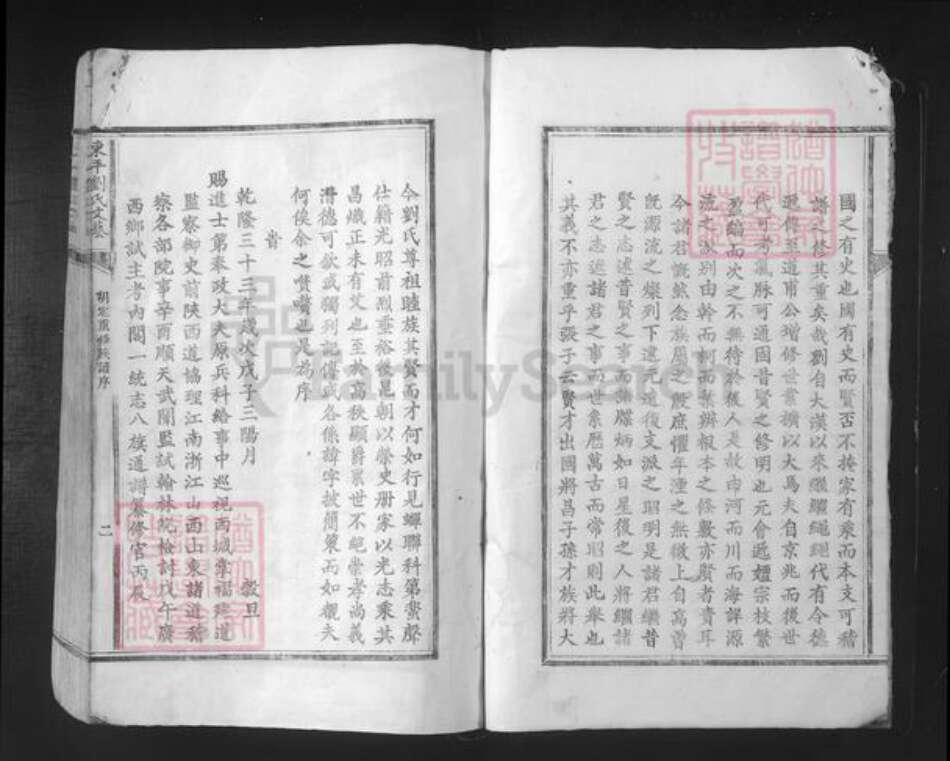 國之有史也國有史而賢否不揜家有乘而本支可稽
譜之修其重矣哉劉自大漢以來繼繼繩繩代有令德
遞傳至道甫公增修世業擴以大馬夫自京兆而後世
代可考氣脉可通固昔賢之修明也元會遞嬗宗枝繁
盈編而次之不無待於後人是故由河而川而海詳源
流之說別由幹而柯而葉辨根本之條數亦賢者責耳
今諸君慨然念族屬之殷庶懼年湮之無徵上自高曾
既源流之燦列下逮元遠復支派之昭明是諸君繼昔
賢之志述昔賢之事而譜牒炳如日星後之人將繼諸
君之志述諸君之事而世系歷萬古而常昭則此舉也
其義不亦重乎張子云賢才出國將昌子孫才族將大
今劉氏尊祖睦族其賢而才何如行見蟬聯科第蜚聲
仕籍光昭前烈垂裕後昆朝以榮史册家以光志乘其
昌熾正未有艾也至於高秩顯爵累世不絕崇孝尚義
潛德可欽或獨列記傳或各係諱字披簡策而如覩夫
何俟余之嘖嘖也是為序
旹
乾隆三十三年歲次戊子三陽月 穀旦
賜進士第奉政大夫原兵科給事中巡視西城掌福建道
監察御史前陝西道協理江南浙江山西山東諸道稽
察各部院事辛酉順天武闈監試翰林院檢討戊午廣
西鄉試主考內閣一統志八旗道譜纂修官丙辰
東平劉氏文藝
重修族譜序
二
FamilySearch